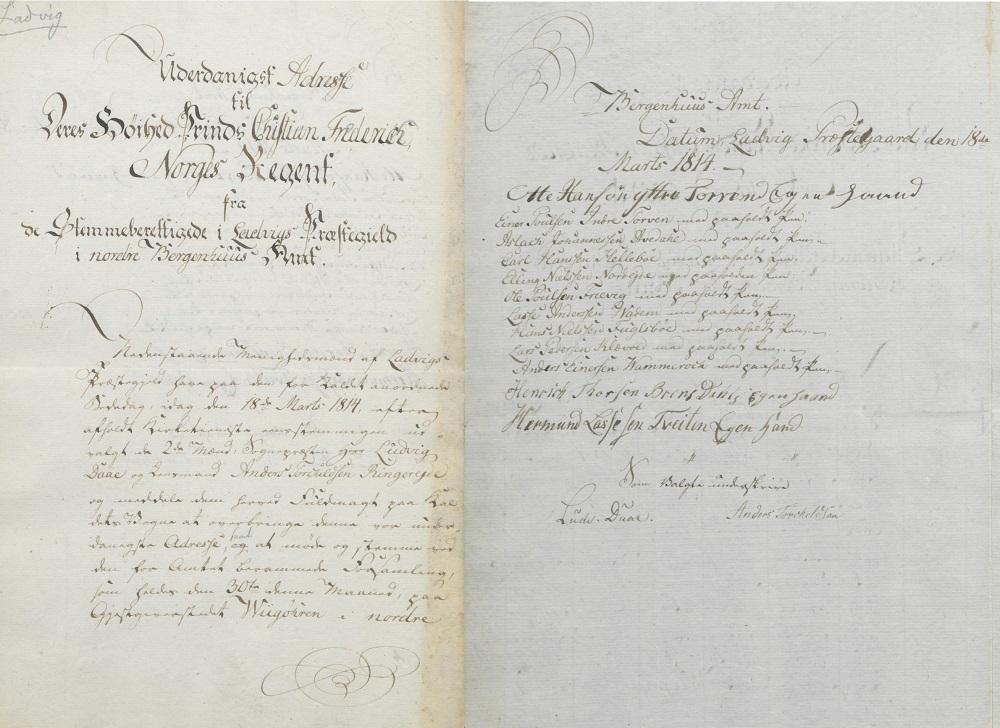 Ladvig
Uderdanigst Adresse
til
Deres Höihed Prinds Christian Frederich,
Norges Regent,
fra
de Stemmeberettigede i Ladvigs Præstegield
i nordre Bergenhuus Amt.
Nedenstaaende Menighedsmænd af Ladvigs
Præstegield have paa den for Kaldet anordnede
Bededag, idag den 18de Marts 1814, efter
afholdt Kirketieneste eenstemmigen ud
valgt de 2de Mænd: Sognepræsten Herr Ludvig
Daae og Anders Torkildsen Ringereide
og meddele dem herved Fuldmagt paa Kal
dets Vegne at overbringe denne vor under-
danigste Adresse, og at møde og stemme ved
den for Amtet berammede Forsamling,
som holdes den 30te denne Maaned, paa
Gjestgiverstedet Wiigören i nordre
Bergenhuus Amt.
Datum, Ladvig Præstegaard den 18de
Marts 1814.
Otte Hansön yttre Torvend Egen Haand
Einer Poulsen Indre Torven med paaholdt Pen.
Aslach Johannessen Avedahl med paaholdt Pen.
Carl Hanssen Helleböe med paaholdt Pen.
Elling Nielsen Nordeide med paaholden Pen.
Ole Poulsen Trævig med paaholdt Pen.
Lasse Andersen Wadem med paaholdt Pen.
Hans Nielsen Fuglsböe med paaholdt Pen.
Lars Pedersen Klævold med paaholdt Pen.
Anders Einersen Hammervia med paaholdt Pen.
Henrich Thorsen Brensdahl, Egen Haand
Hermund Lassesen Treiten Egen Hand
Som Valgte underskrive
Ludv. Daae. Anders Torkeldsen